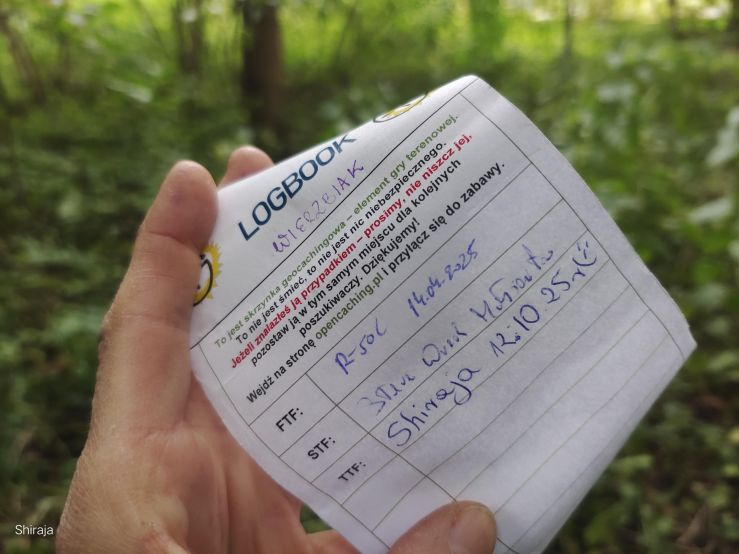 LOGBOOK
WIERZBIAK
To jest skrzynka geocachingowa – element gry terenowej.
To nie jest śmieć, to nie jest nic niebezpiecznego.
Jeżeli znalazłeś ją przypadkiem – prosimy, nie niszcz jej,
pozostaw ją w tym samym miejscu dla kolejnych
poszukiwaczy. Dziękujemy!
Wejdź na stronę opencaching.pl i przyłącz się do zabawy.
FTF: R-50C 14.04.2025
STF:
TTF: Shiraja 12:10.25r
Shiraja